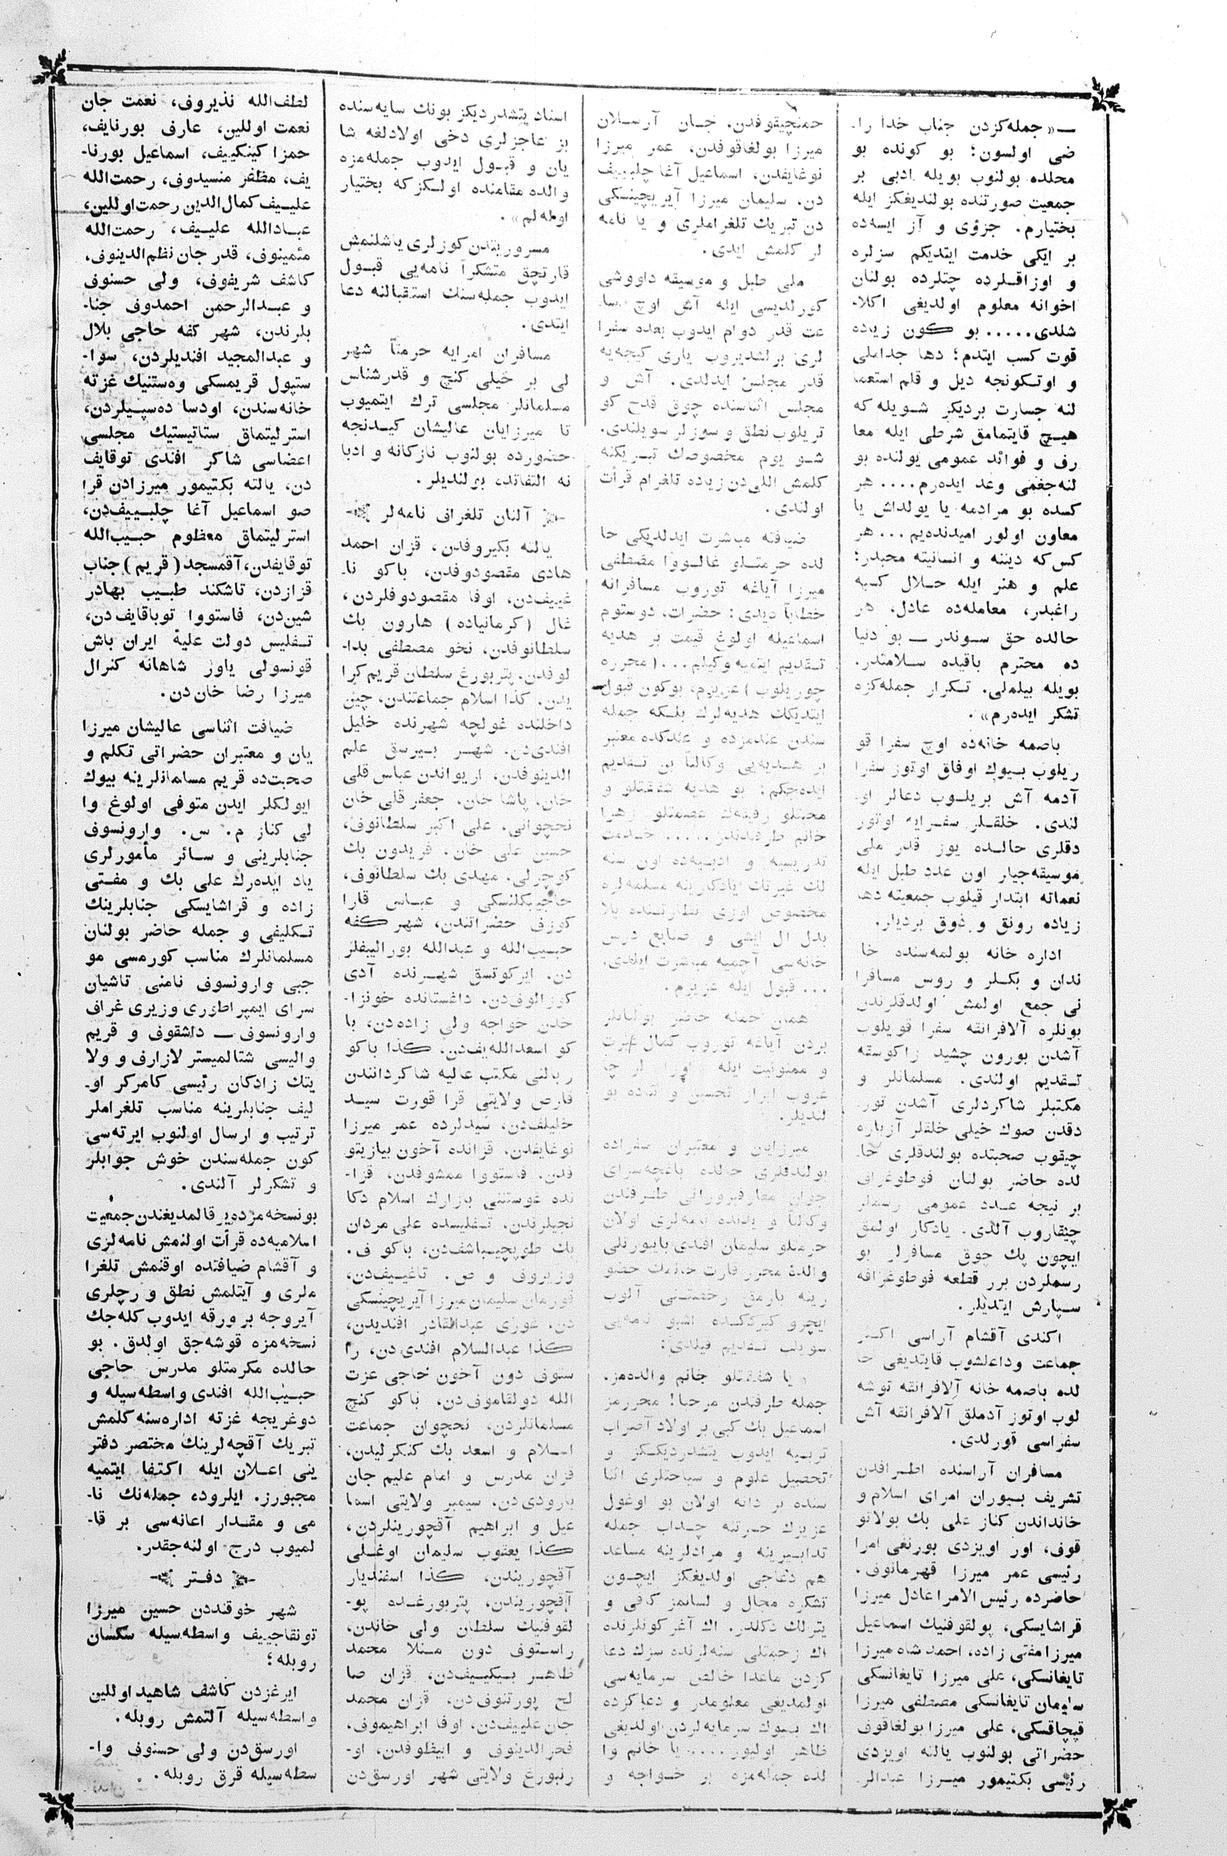 — «جمله‌كزدن جناب خدا را-
ضی اولسون؛ بو كونده بو
محلده بولنوب بويله ادبی بر
جمعيت صورتنده بولنديغكز ايله
بختيارم. جزؤی و آز ايسه‌ده
بر ايكی خدمت ايتديكم سزلره
و اوزاقلرده چتلرده بولنان
اخوانه معلوم اولديغی اكلا-
شلدی..... بو كون زياده
قوت كسب ايتدم؛ دها جداملی
و اوتكونجه ديل و قلم استعما
لنه جسارت برديكز شويله كه
هيچ قايتمامق شرطی ايله معا
رف و فوائد عمومی يولنده بو
لنه‌جغمی وعد ايده‌رم.... هر
كسده بو مرادمه يا يولداش يا
معاون اولور اميدنده‌يم... هر
كس كه ديننه و انسانيته محبدر؛
علم و هنر ايله حلال كسبه
راغبدر، معامله‌ده عادل، هر
حالده حق سوندر — بو دنيا
ده محترم باقيده سلامتدر.
بويله بيلملی. تكرار جمله‌كزه
تشكر ايده‌رم».
باصمه خانه‌ده اوچ سفرا قو
ريلوب بيوك اوفاق اوتوز سفرا
آدمه آش بريلوب دعالر او-
لندی. خلقلر سفرايه اوتور
دقلری حالده يوز قدر ملی
موسيقه‌جيلر اون عدد طبل ايله
نغماته ابتدار قيلوب جمعيته دها
زياده رونق و ذوق برديلر.
اداره خانه بولمه‌سنده خا
ندان و بكلر و روس مسافرا
نی جمع اولمش اولدقلرندن
بونلره آلافرانقه سفرا قويلوب
آشدن بورون چشيد زاكوسقه
تقديم اولندی. مسلمانلر و
مكتبلر شاكردلری آشدن تور-
دقدن صوك خيلی خلقلر آزباره
چيقوب صحبتده بولندقلری حا-
لده حاضر بولنان فوطوغراف
بر نيجه عدد عمومی رسملر
چيقاروب آلدی. يادكار اولمق
ايچون پك چوق مسافرلر بو
رسملردن برر قطعه فوطوغرافه
سپارش ايتديلر.
اكندی آقشام آراسی اكثر
جماعت وداعلشوب قايتديغی حا
لده باصمه خانه آلافرانقه توشه
لوب اوتوز آدملق آلافرانقه آش
سفراسی قورلدی.
مسافران آراسنده اطرافدن
تشريف بيوران امرای اسلام و
خانداندن كناز علی بك بولاتو
قوف، اور اويزدی بورنغی امرا
رئيسی عمر ميرزا قهرمانوف.
حاضرده رئيس الامرا عادل ميرزا
قراشايسكی، پولقوفنيك اسماعيل
ميرزا مفتی زاده، احمد شاه ميرزا
تايغانسكی، علی ميرزا تايغانسكی
سليمان تايغانسكی مصطفی ميرزا
قپچاقسكی، علی ميرزا بولغاقوف
حضراتی بولنوب يالته اويزدی
رئيسی بكتيمور ميرزا عبدالر
حمنچيقوفدن، جان آرسلان
ميرزا بولغاقوفدن، عمر ميرزا
نوغايفدن، اسماعيل آغا چلبييف
دن، سليمان ميرزا آيريچينسكی
دن تبريك تلغراملری و يا نامه
لر كلمش ايدی.
ملی طبل و موسيقه داووشی
كورلديسی ايله آش اوچ سا-
عت قدر دوام ايدوب بعده سفرا
لری برلشديروب ياری كيجه‌يه
قدر مجلس ايدلدی. آش و
مجلس اثناسنده چوق قدح كو
تريلوب نطق و سوزلر سويلندی.
شو يوم مخصوصك تبريكنه
كلمش اللی‌دن زياده تلغرام قرأت
اولندی.
ضيافته مباشرت ايدلديكی حا
لده حرمتلو غالووا مصطفی
ميرزا آياغه توروب مسافرانه
خطاباً ديدی: حضرات، دوستوم
اسماعيله اولوغ قيمت بر هديه
تقديم ايتمه وكيلم... (محرره
چوريلوب) عزيزم، بوكون قبول
ايتديكك هديه‌لرك بلكه جمله
سندن عندمزده و عندكده معتبر
بر هديه‌يی وكالتاً بن تقديم
ايده‌جكم؛ بو هديه شفقتلو و
محبتلو رفيقه‌ك عصمتلو زهرا
خانم طرفندندر..... خدمت
تدريسيه و ادبيه‌ده اون سنه
لك غيرتك يادكارينه مسلمه‌لره
مخصوص اوزی نظارتنده بلا
بدل ال ايشی و صنايع درس
خانه‌سی آچميه مباشرت ايلدی.
... قبول ايله عزيزم.
همان جمله حاضر بولنانلر
بردن آياغه توروب كمال غيرت
و ممنونيت ايله
لديلر.
ميرزايان و معتبران سفراده
بولندقلری حالده باغچه‌سرای
وكالتاً و يازيده نامه‌لری اولان
حرمتلو سليمان افندی بايبورتلی
جمله طرفندن مرحبا! محررمز
اسماعيل بك كبی بر اولاد آصراب
تربيه ايدوب يتشدرديكز و
تحصيل علوم و سياحتلری اثنا
سنده بر دانه اولان بو اوغول
عزيزك حسرتنه چداب جمله
تدابيرينه و مرادلرينه مساعد
هم دعاجی اولديغكز ايچون
تشكره مجال و لسانمز كافی و
يترلك دكلدر. اك آغر كونلرنده
اك زحمتلی سنه‌لرنده سزك دعا
كزدن ماعدا خالص سرمايه‌سی
اولمديغی معلومدر و دعاكزده
اك بيوك سرمايه‌لردن اولديغی
ظاهر اوليور.... يا خانم وا
لده جمله‌مزه بر خواجه و
استاد يتشدرديكز بونك سايه‌سنده
بز عاجزلری دخی اولادلغه شا
يان و قبول ايدوب جمله‌مزه
والده مقامنده اولكز كه بختيار
اوله‌لم».
مسرور بتدن كوزلری ياشلنمش
قارتچق متشكراً نامه‌يی قبول
ايدوب جمله‌سنك استقبالنه دعا
ايتدی.
مسافران امرايه حرمتاً شهر
لی بر خيلی كنج و قدرشناس
مسلمانلر مجلسی ترك ايتميوب
تا ميرزايان عاليشان كيدنجه
حضورده بولنوب نازكانه و ادبا
نه التفاتده بولنديلر.
آلنان تلغراف نامه‌لر
يالته بكيروفدن، قزان احمد
هادی مقصودوفدن، باكو نا-
غييف‌دن، اوفا مقصودوفلردن،
غال (كرمانياده) هارون بك
سلطانوفدن، نخو مصطفی بدا-
لوفدن، پتربورغ سلطان قريم كرا
يدن، كذا اسلام جماعتندن، چين
داخلنده غولجه شهرنده خليل
افندی‌دن، شهر بيرسق علم
الدينوفدن، اريواندن عباس قلی
خان، پاشا خان، جعفر قلی خان
نخچوانی، علی اكبر سلطانوف،
حسين علی خان، فريدون بك
كوچرلی، مهدی بك سلطانوف،
حاجيبكلنسكی و عباس قارا
كوزف حضراتندن، شهر كفه
حبيب‌الله و عبدالله بوراليبفلر
دن، ايركوتسق شهرنده آدی
كوزالوف‌دن، داغستانده خونزا-
خدن خواجه ولی زاده‌دن، با
كو اسعدالله‌يف‌دن، كذا باكو
ريالنی مكتب عاليه شاكرداندن
قارص ولايتی قرا قورت سيد
خليلف‌دن، شيدلرده عمر ميرزا
نوغايفدن، قزانده آخون بيازيتو
فدن، فاستووا ممشوفدن، قزا-
نده غوستننی بازارك اسلام دكا
نجيلرندن، تفليسده علی مردان
بك طوپچيباشف‌دن، باكو ف.
وزيروف و ص. تاغييف‌دن،
قورمان سليمان ميرزا آيريچينسكی
دن، غوری عبدالقادر افنديدن،
كذا عبدالسلام افندی‌دن، را
ستوف دون آخون حاجی عزت
الله دولقاموف‌دن، باكو كنج
مسلمانلردن، نخچوان جماعت
اسلام و اسعد بك كنكرليدن،
قزان مدرس و امام عليم جان
بارودی‌دن، سيمبر ولايتی اسما
عيل و ابراهيم آقچورينلردن،
كذا يعقوب سليمان اوغلی
آقچوريندن، كذا اسفنديار
آقچوريندن، پتربورغده پو-
لقوفنيك سلطان ولی خاندن،
راستوف دون منلا محمد
ظاهر بيكييف‌دن، قزان صا
لح پورتنوف‌دن، قزان محمد
جان علييف‌دن، اوفا ابراهيموف،
فخرالدينوف و ابيظوفدن، او-
رنبورغ ولايتی شهر اورسق‌دن
لطف‌الله نذيروف، نعمت جان
نعمت اوللين، عارف بورنايف،
حمزا كينكييف، اسماعيل بورنا-
يف، مظفر منسيدوف، رحمت‌الله
علييف كمال‌الدين رحمت اوللين،
عبادالله علييف، رحمت‌الله
مئمينوف، قدر جان نظم‌الدينوف،
كاشف شريفوف، ولی حسنوف
و عبدالرحمن احمدوف جنا-
بلرندن، شهر كفه حاجی بلال
و عبدالمجيد افنديلردن، سوا-
ستپول قريمسكی وه‌ستنيك غزته
خانه‌سندن، اودسا ده‌سپيلردن،
استرليتماق ستاتيستيك مجلسی
اعضاسی شاكر افندی توقايف
دن، يالته بكتيمور ميرزادن قرا
صو اسماعيل آغا چلبييف‌دن،
استرليتماق معظوم حبيب‌الله
توقايفدن، آقمسجد (قريم) جناب
قزازدن، تاشكند طبيب بهادر
شين‌دن، فاستووا توباقايف‌دن،
تفليس دولت عليهٔ ايران باش
قونسولی ياور شاهانه كنرال
ميرزا رضا خان‌دن.
ضيافت اثناسی عاليشان ميرزا
يان و معتبران حضراتی تكلم و
صحبت‌ده قريم مسلمانلرينه بيوك
ايولكلر ايدن متوفی اولوغ وا
لی كناز م. س. وارونسوف
جنابلرينی و سائر مأمورلری
ياد ايده‌رك علی بك و مفتی
زاده و قراشايسكی جنابلرينك
تكليفی و جمله حاضر بولنان
مسلمانلرك مناسب كورمسی مو
جبی وارونسوف نامنی تاشيان
سرای ايمپراطوری وزيری غراف
وارونسوف — داشقوف و قريم
واليسی شتالميستر لازارف و ولا
يتك زادكان رئيسی كامركر او-
ليف جنابلرينه مناسب تلغراملر
ترتيب و ارسال اولنوب ايرته‌سی
كون جمله‌سندن خوش جوابلر
و تشكرلر آلندی.
بو نسخه مزده ير قالمديغندن جمعيت
اسلاميه‌ده قرأت اولنمش نامه‌لری
و آقشام ضيافتده اوقنمش تلغرا
ملری و آيتلمش نطق و رچلری
آيروجه بر ورقه ايدوب كله‌جك
نسخه‌مزه قوشه‌جق اولدق. بو
حالده مكرمتلو مدرس حاجی
حبيب‌الله افندی واسطه‌سيله و
دوغريجه غزته اداره‌سنه كلمش
تبريك آقچه‌لرينك مختصر دفتر
ينی اعلان ايله اكتفا ايتميه
مجبورز. ايلروده جمله‌نك نا-
می و مقدار اعانه‌سی بر قا-
لميوب درج اولنه‌جقدر.
دفتر
شهر خوقنددن حسين ميرزا
تونقاجييف واسطه‌سيله سكسان
روبله؛
ايرغزدن كاشف شاهيد اوللين
واسطه‌سيله آلتمش روبله.
اورسق‌دن ولی حسنوف وا-
سطه‌سيله قرق روبله.